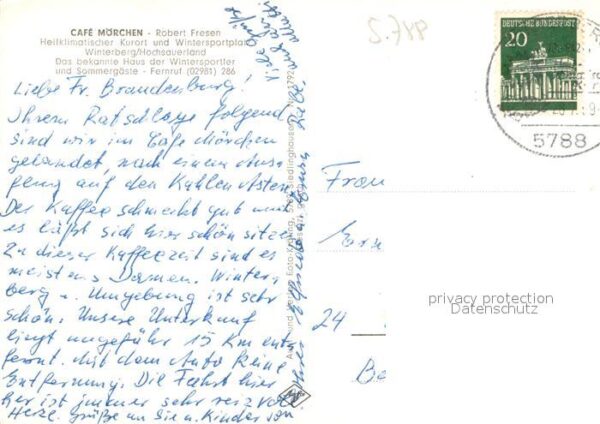 CAFÉ MÖRCHEN - Robert Fresen
Heilklimatischer Kurort und Wintersportplatz
Winterberg/Hochsauerland
Das bekannte Haus der Wintersportler
und Sommergäste - Fernruf (02981) 286
Liebe Fr. Brandenburg!
Ihrem Ratschlage folgend
sind wir im Cafe Mörchen
gelandet, nach einem Aus
flug auf den Kahlen Asten
Der Kaffee schmeckt gut und
es läßt sich hier schön sitzen
Zu dieser Kaffeezeit sind es
meistens Damen. Winter-
berg u. Umgebung ist sehr
schön. Unsere Unterkunft
liegt ungefähr 15 Km ent
fernt. Mit dem Auto keine
Entfernung. Die Fahrt hier
her ist immer sehr reizvoll
Herzl. Grüße an Sie u. Kinder von
Ihrer
S.788
DEUTSCHE BUNDESPOST
20
5788
Frau
24
Be
privacy protection
Datenschutz